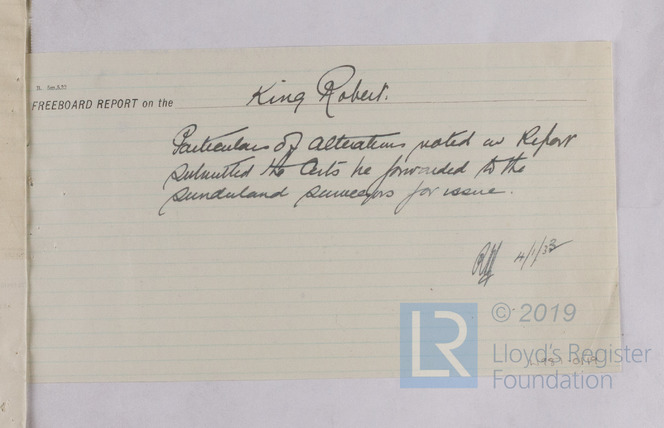 FREEBOARD REPORT on the King Robert.
Particulars of alterations noted in Report
submitted the Certs be forwarded to the
Sunderland Surveyors for issue.
4/1/33
LR
© 2019
Lloyd's Register
Foundation